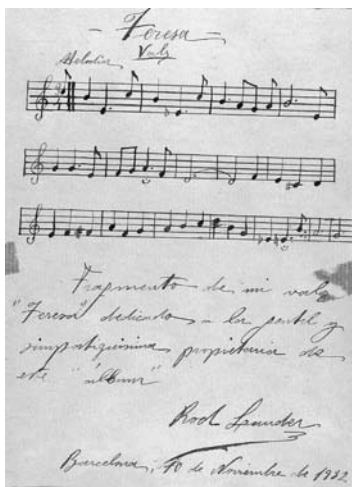 - Teresa -
Vals
Melodia
Fragmento de mi vals
"Teresa" dedicado a la gentil y
simpatiquisima propietaria de
este "álbum"
Rod
Barcelona, 10 de Noviembre de 1932